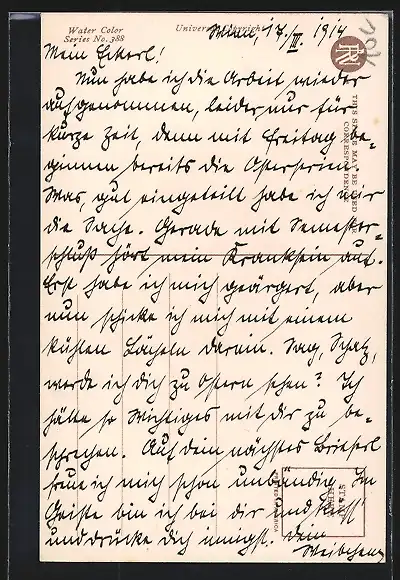 Water Color
Series No. 388
Universal Copyright
Wien, 17./III. 1914
Mein Eckerl!
Nun habe ich die Arbeit wieder
aufgenommen, leider nur für
kurze Zeit, denn mit Freitag be-
ginnen bereits die Osterferien.
Was, gut eingeteilt habe ich mir
die Sache. Gerade mit Semester-
schluß hört mein Kranksein auf.
Erst habe ich mich geärgert, aber
nun schicke ich mich mit einem
kühlen Lächeln darein. Sag, Schatz,
werde ich dich zu Ostern sehen? Ich
hätte so Wichtiges mit dir zu be-
sprechen. Auf dein nächstes Brieferl
freue ich mich schon unbändig. Im
Geiste bin ich bei dir und küss'
und drücke dich innigst. Dein
Weibchen
THIS SPACE MAY BE USED FOR
CORRESPONDENCE
STAMP
HERE